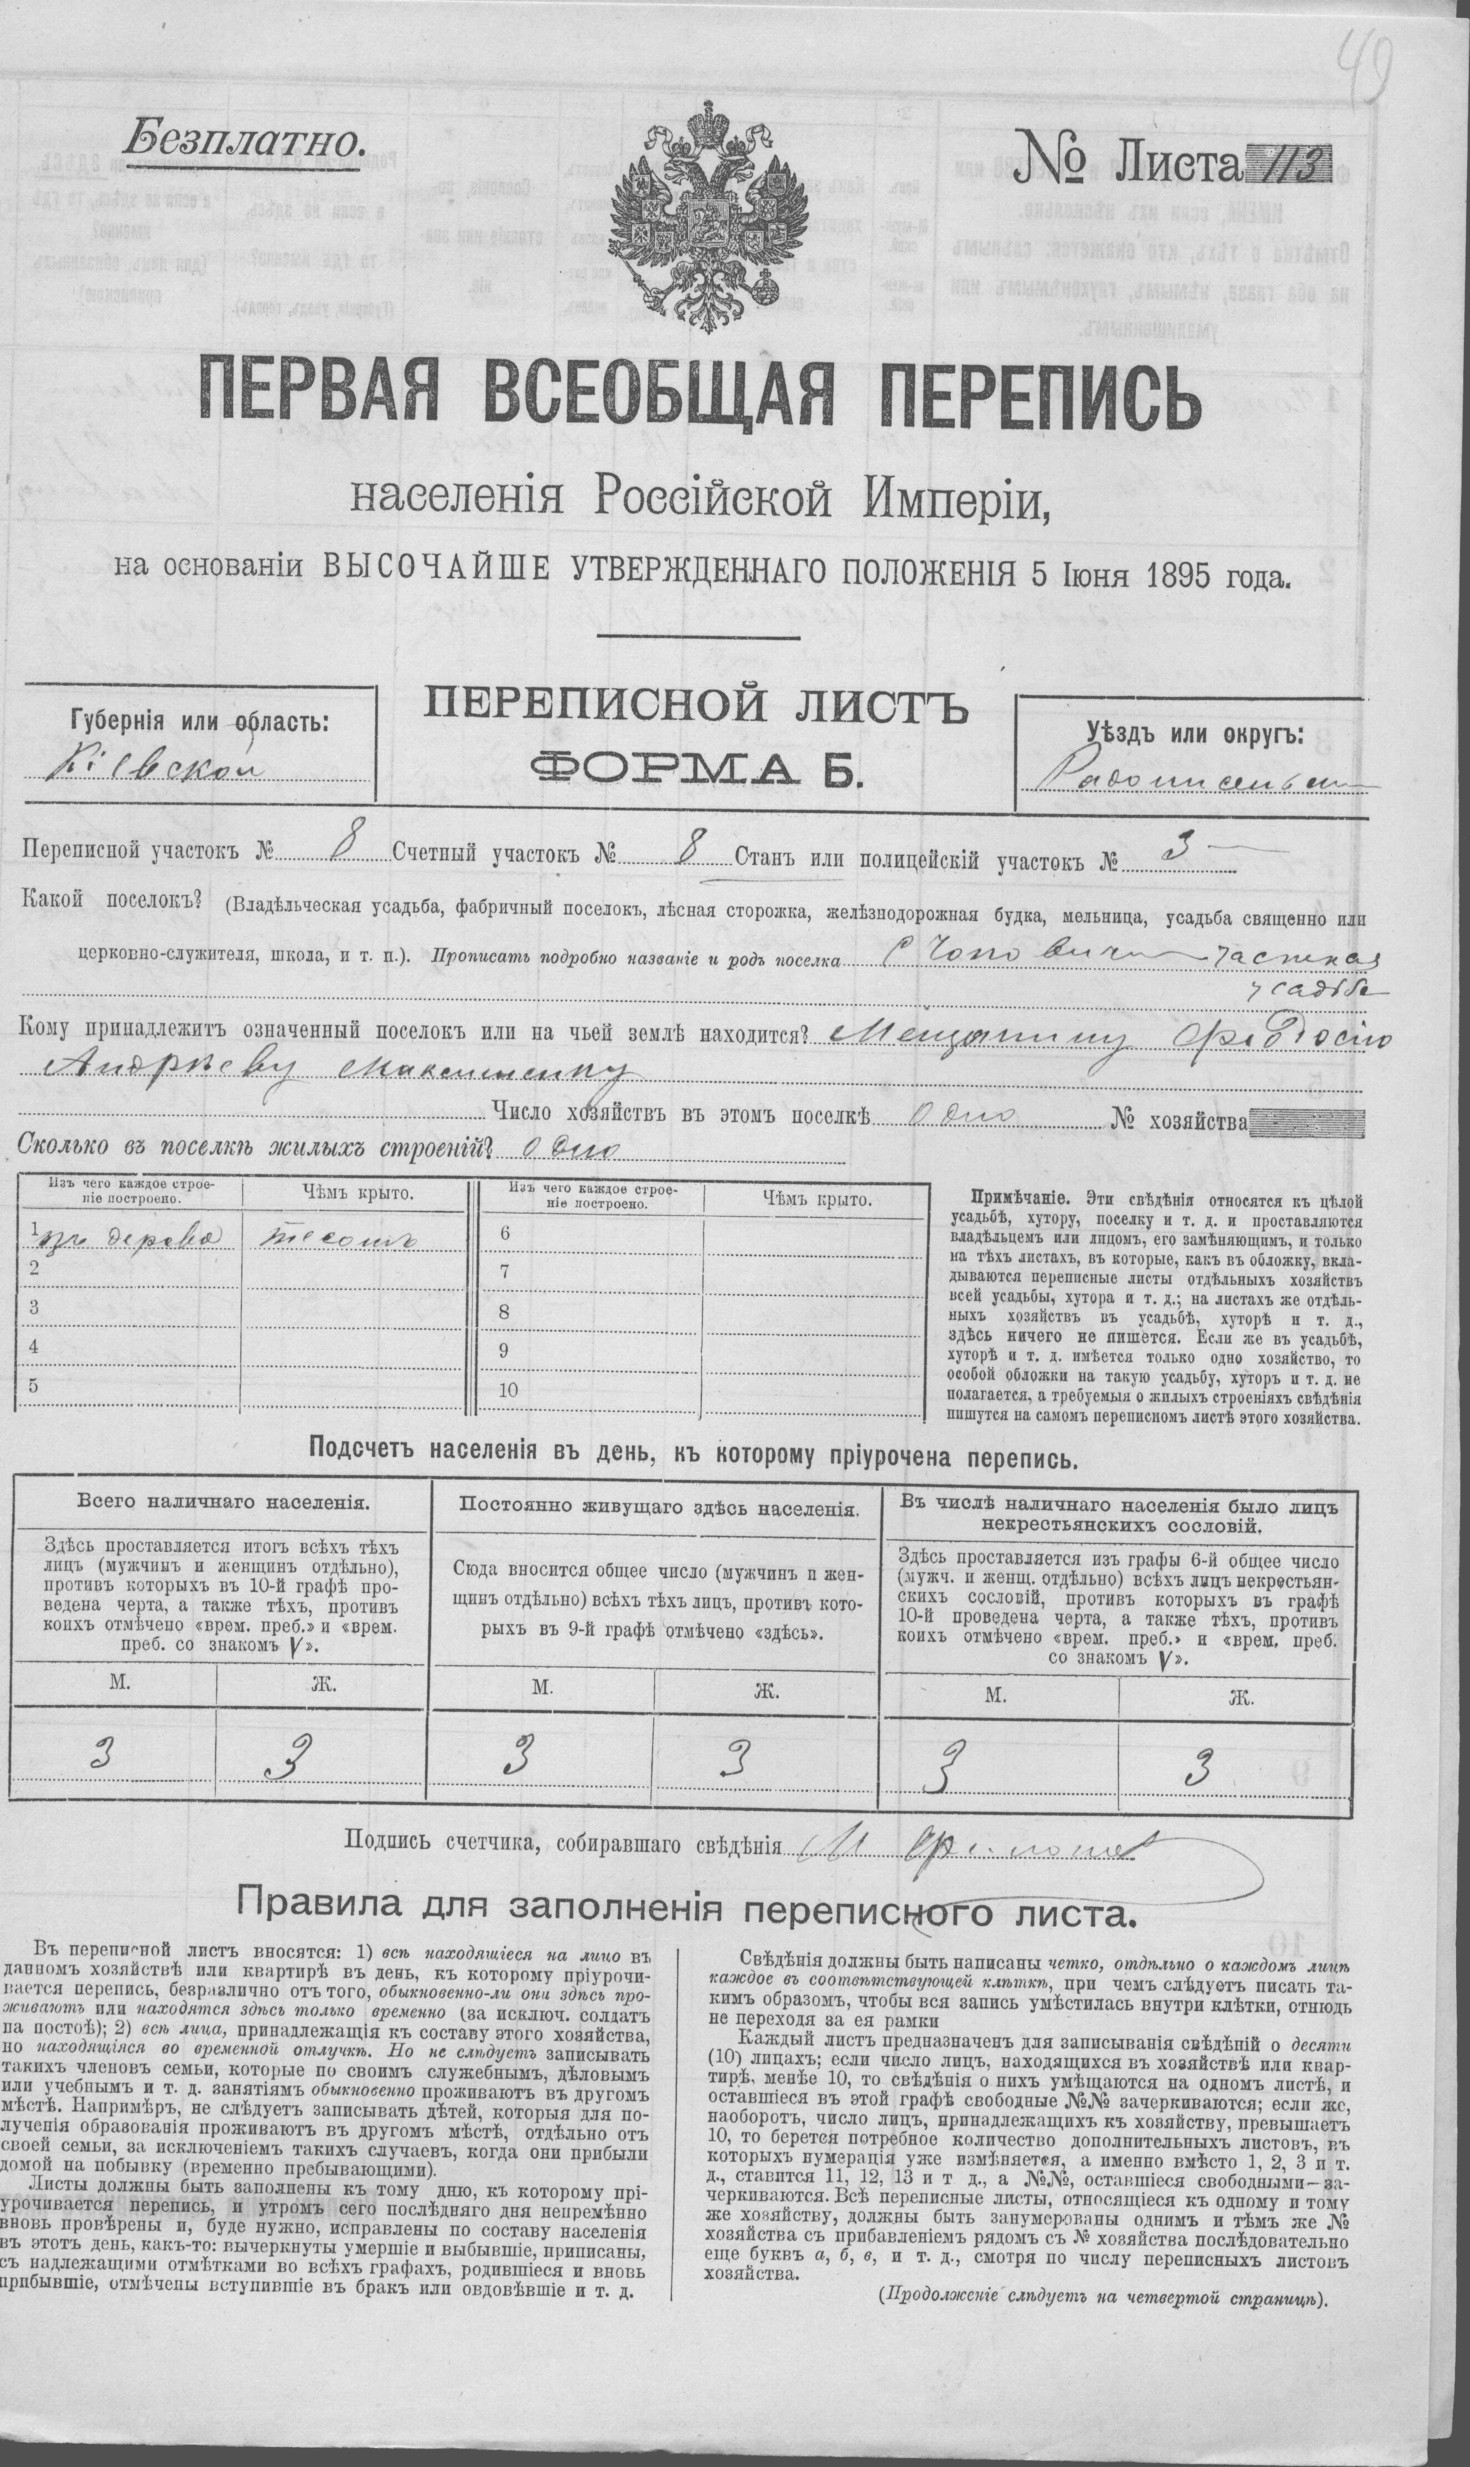 49
Безплатно.
№ Листа 113
ПЕРВАЯ ВСЕОБЩАЯ ПЕРЕПИСЬ
населенія Россійской Имперіи,
на основаніи ВЫСОЧАЙШЕ УТВЕРЖДЕННАГО ПОЛОЖЕНІЯ 5 Іюня 1895 года.
Губернія или область:
Кіевской
ПЕРЕПИСНОЙ ЛИСТЪ
ФОРМА Б.
Уѣздъ или округъ:
Переписной участокъ № 8 Счетный участокъ № 8 Станъ или полицейскій участокъ № 3
Какой поселокъ? (Владѣльческая усадьба, фабричный поселокъ, лѣсная сторожка, желѣзнодорожная будка, мельница, усадьба священно или
церковно-служителя, школа, и т. п.). Прописать подробно названіе и родъ поселка С Чоповичи частная
усадьба
Кому принадлежитъ означенный поселокъ или на чьей землѣ находится? Мещанину Феодосію
Андрѣеву Максименку
Число хозяйствъ въ этомъ поселкѣ одно № хозяйства
Сколько въ поселкѣ жилыхъ строеній? одно
Изъ чего каждое строе-
ніе построено.
Чѣмъ крыто.
Изъ чего каждое строе-
ніе построено.
Чѣмъ крыто.
1 изъ дерева тесомъ 6
2 7
3 8
4 9
5 10
Примѣчаніе. Эти свѣдѣнія относятся къ цѣлой
усадьбѣ, хутору, поселку и т. д. и проставляются
владѣльцемъ или лицомъ, его замѣняющимъ, и только
на тѣхъ листахъ, въ которые, какъ въ обложку, вкла-
дываются переписные листы отдѣльныхъ хозяйствъ
всей усадьбы, хутора и т. д.; на листахъ же отдѣль-
ныхъ хозяйствъ въ усадьбѣ, хуторѣ и т. д.,
здѣсь ничего не пишется. Если же въ усадьбѣ,
хуторѣ и т. д. имѣется только одно хозяйство, то
особой обложки на такую усадьбу, хуторъ и т. д. не
полагается, а требуемыя о жилыхъ строеніяхъ свѣдѣнія
пишутся на самомъ переписномъ листѣ этого хозяйства.
Подсчетъ населенія въ день, къ которому пріурочена перепись.
Всего наличнаго населенія.
Здѣсь проставляется итогъ всѣхъ тѣхъ
лицъ (мужчинъ и женщинъ отдѣльно),
противъ которыхъ въ 10-й графѣ про-
ведена черта, а также тѣхъ, противъ
коихъ отмѣчено «врем. преб.» и «врем.
преб. со знакомъ V».
М. Ж.
3 3
Постоянно живущаго здѣсь населенія.
Сюда вносится общее число (мужчинъ и жен-
щинъ отдѣльно) всѣхъ тѣхъ лицъ, противъ кото-
рыхъ въ 9-й графѣ отмѣчено «здѣсь».
М. Ж.
3 3
Въ числѣ наличнаго населенія было лицъ
некрестьянскихъ сословій.
Здѣсь проставляется изъ графы 6-й общее число
(мужч. и женщ. отдѣльно) всѣхъ лицъ некрестьян-
скихъ сословій, противъ которыхъ въ графѣ
10-й проведена черта, а также тѣхъ, противъ
коихъ отмѣчено «врем. преб.» и «врем. преб.
со знакомъ V».
М. Ж.
3 3
Подпись счетчика, собиравшаго свѣдѣнія
Правила для заполненія переписного листа.
Въ переписной листъ вносятся: 1) всѣ находящіеся на лицо въ
данномъ хозяйствѣ или квартирѣ въ день, къ которому пріурочи-
вается перепись, безразлично отъ того, обыкновенно-ли они здѣсь про-
живаютъ или находятся здѣсь только временно (за исключ. солдатъ
на постоѣ); 2) всѣ лица, принадлежащія къ составу этого хозяйства,
но находящіяся во временной отлучкѣ. Но не слѣдуетъ записывать
такихъ членовъ семьи, которые по своимъ служебнымъ, дѣловымъ
или учебнымъ и т. д. занятіямъ обыкновенно проживаютъ въ другомъ
мѣстѣ. Напримѣръ, не слѣдуетъ записывать дѣтей, которыя для по-
лученія образованія проживаютъ въ другомъ мѣстѣ, отдѣльно отъ
своей семьи, за исключеніемъ такихъ случаевъ, когда они прибыли
домой на побывку (временно пребывающими).
Листы должны быть заполнены къ тому дню, къ которому прі-
урочивается перепись, и утромъ сего послѣдняго дня непремѣнно
вновь провѣрены и, буде нужно, исправлены по составу населенія
въ этотъ день, какъ-то: вычеркнуты умершіе и выбывшіе, приписаны,
съ надлежащими отмѣтками во всѣхъ графахъ, родившіеся и вновь
прибывшіе, отмѣчены вступившіе въ бракъ или овдовѣвшіе и т. д.
Свѣдѣнія должны быть написаны четко, отдѣльно о каждомъ лицѣ
каждое въ соотвѣтствующей клѣткѣ, при чемъ слѣдуетъ писать та-
кимъ образомъ, чтобы вся запись умѣстилась внутри клѣтки, отнюдь
не переходя за ея рамки
Каждый листъ предназначенъ для записыванія свѣдѣній о десяти
(10) лицахъ; если число лицъ, находящихся въ хозяйствѣ или квар-
тирѣ, менѣе 10, то свѣдѣнія о нихъ умѣщаются на одномъ листѣ, и
оставшіеся въ этой графѣ свободные №№ зачеркиваются; если же,
наоборотъ, число лицъ, принадлежащихъ къ хозяйству, превышаетъ
10, то берется потребное количество дополнительныхъ листовъ, въ
которыхъ нумерація уже измѣняется, а именно вмѣсто 1, 2, 3 и т.
д., ставится 11, 12, 13 и т д., а №№, оставшіеся свободными—за-
черкиваются. Всѣ переписные листы, относящіеся къ одному и тому
же хозяйству, должны быть занумерованы однимъ и тѣмъ же №
хозяйства съ прибавленіемъ рядомъ съ № хозяйства послѣдовательно
еще буквъ а, б, в, и т. д., смотря по числу переписныхъ листовъ
хозяйства.
(Продолженіе слѣдуетъ на четвертой страницѣ).